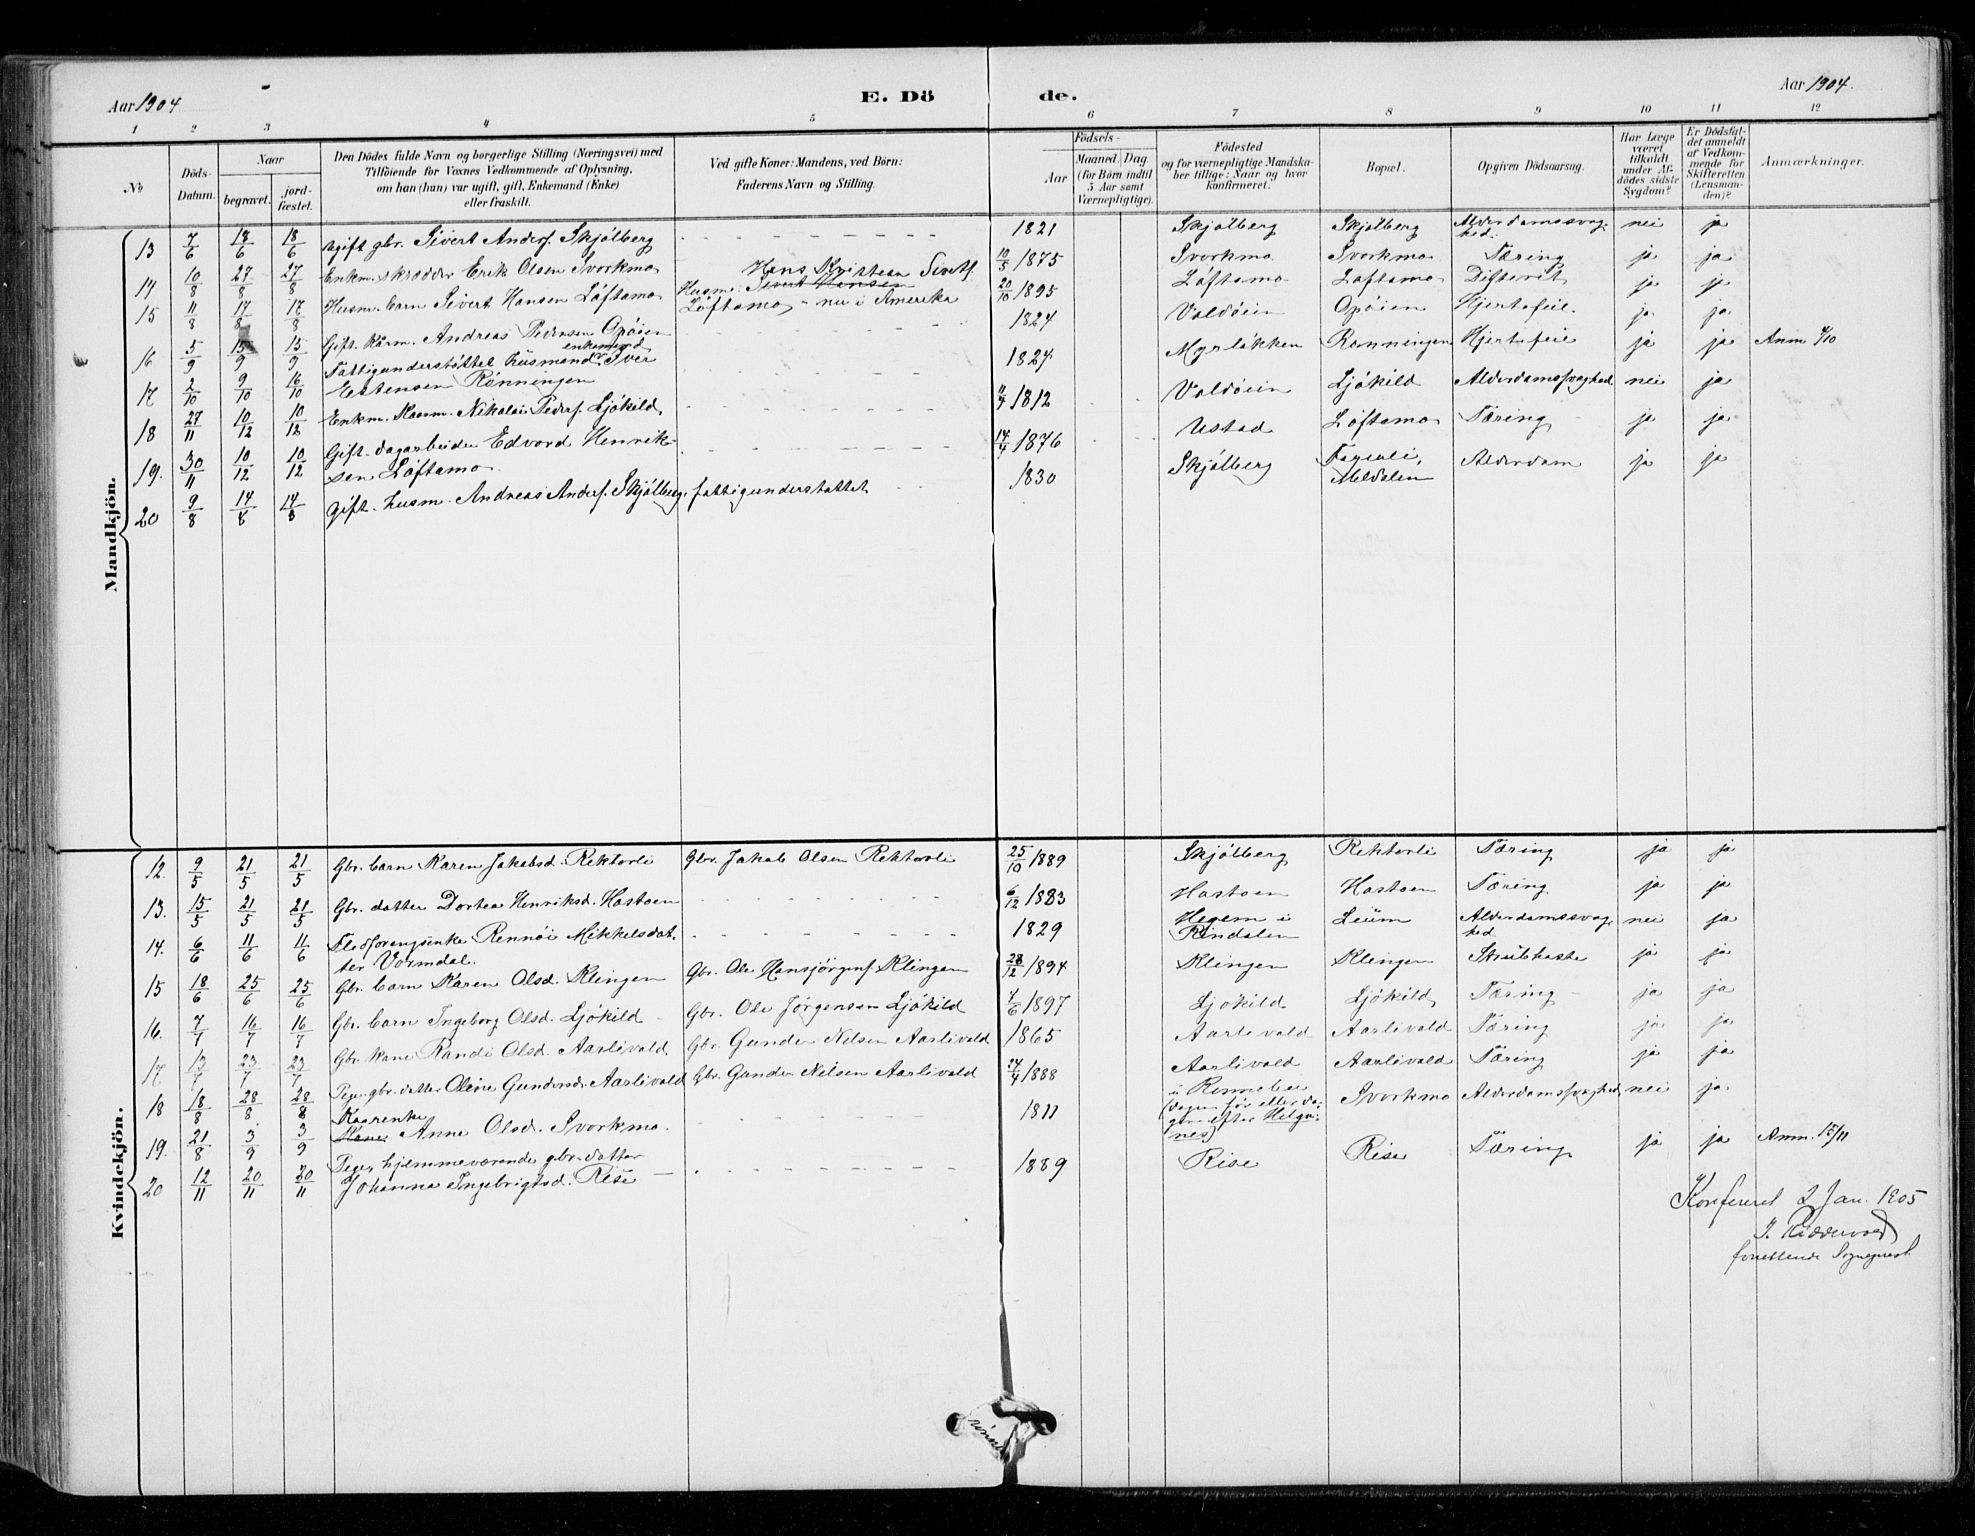 Aar 1904 E. Dö de. Aar 1904.
1 2 3 4 5 6 7 8 9 10 11 12
№ Döds-Datum. Naar begravet. jordfæstet. Den Dödes fulde Navn og borgerlige Stilling (Næringsvei) med Tilföiende for Voxnes Vedkommende af Oplysning, om han (hun) var ugift, gift, Enkemand (Enke) eller fraskilt. Ved gifte Koner: Mandens, ved Börn: Faderens Navn og Stilling. Födsels- Aar Maaned. Dag. (for Börn indtil 5 Aar samt Værnepligtige). Födested og for værnepligtige Mandskaber tillige: Naar og hvor konfirmeret. Bopæl. Opgiven Dödsaarsag. Har Læge været tilkaldt under Afdödes sidste Sygdom? Er Dödsfaldet anmeldt af Vedkommende for Skifteretten (Lensmanden)? Anmærkninger.
Mandkjön.
13 7/6 18/6 18/6 ugift gbr. Sivert Anders. Skjölberg 1821 Skjölberg Skjölberg Alderdomssvaghed nei ja
14 10/8 27/8 27/8 Enkm. skrædder Erik Olsen Svorkmo 10/5 1875 Svorkmo Svorkmo Tæring ja ja
15 11/8 17/8 17/8 Husm. barn Sivert Hansen Löftamo Husm. Sivert Hansen Hans Kristian Siverts. Löftamo - nu i Amerika 20/10 1895 Löftamo Löftamo Difterit ja ja
16 5/9 15/9 15/9 Gift. kårm. Andreas Pedersen Opöien 1824 Voldöien Opöien Hjertefeil. ja ja
17 2/10 9/10 16/10 Fattigunderstöttet husmand enkemand Iver Estensen Rönningen 1824 Myrlökken Rönningen Hjertefeil ja ja Anm 4/10
18 27/11 10/12 10/12 Enkm. Kaarm. Nikolai Peders. Ljökild 4/4 1812 Voldöien Ljökild Alderdomssvaghed nei ja
19. 30/11 10/12 10/12 Gift. dagarbeider Edvard Henriksen Löftamo 14/4 1876 Ustad Löftamo Tæring ja ja
20 9/8 14/8 14/8 Gift. husm. Andreas Anders. Skjölberg, fattigunderstøttet 1830 Skjölberg Fagerli, Meldalen Alderdom ja ja
Kvindekjön.
12. 9/5 21/5 21/5 Gbr. barn Karen Jakobsd. Rektorli Gbr. Jakob Olsen Rektorli 25/10 1889 Skjölberg Rektorli Tæring ja ja
13. 15/5 21/5 21/5 Gbr. datter Dortea Henriksd. Hostoen 6/12 1883 Hostoen Hostoen Tæring ja ja
14. 6/6 11/6 11/6 Flodforengsenke Rennöi Mikkelsdatter Vormdal. 1829 Hegem i Rindalen Leüm Alderdomssvaghed nei ja
15 18/6 25/6 25/6 Gbr. barn Karen Olsd. Klingen Gbr. Ole Hansjörgens. Klingen 28/12 1894 Klingen Klingen Strubhoste ja ja
16. 7/7 16/7 16/7 Gbr. barn Ingeborg Olsd. Ljökild Gbr. Ole Jörgensen Ljökild 4/6 1897 Ljökild Ljökild Tæring ja ja
17 13/7 23/7 23/7 Gbr. kone Randi Olsd. Aarlivold Gbr. Gunder Nilsen Aarlivold 1865 Aarlivold Aarlivold Tæring ja ja
18 18/8 28/8 28/8 Pige, gbr. datter Oline Gundersd. Aarlivold Gbr. Gunder Nilsen Aarlivold 17/4 1888 Aarlivold Aarlivold Tæring ja ja
19. 21/8 3/9 3/9 Kone Kaarenke Anne Olsd. Svorkmo. 1811 i Rennebu (dagen för eller dagen efter Helgones) Svorkmo Alderdomssvaghed nei ja
20 12/11 20/11 20/11 Pige, hjemmeværende gbr. datter Johanna Ingebrigtsd. Rise 1889 Rise Rise Tæring ja ja Anm. 15/11
Konfereret 2 Jan. 1905
J. Riddervold
forrettende Sognepræst.